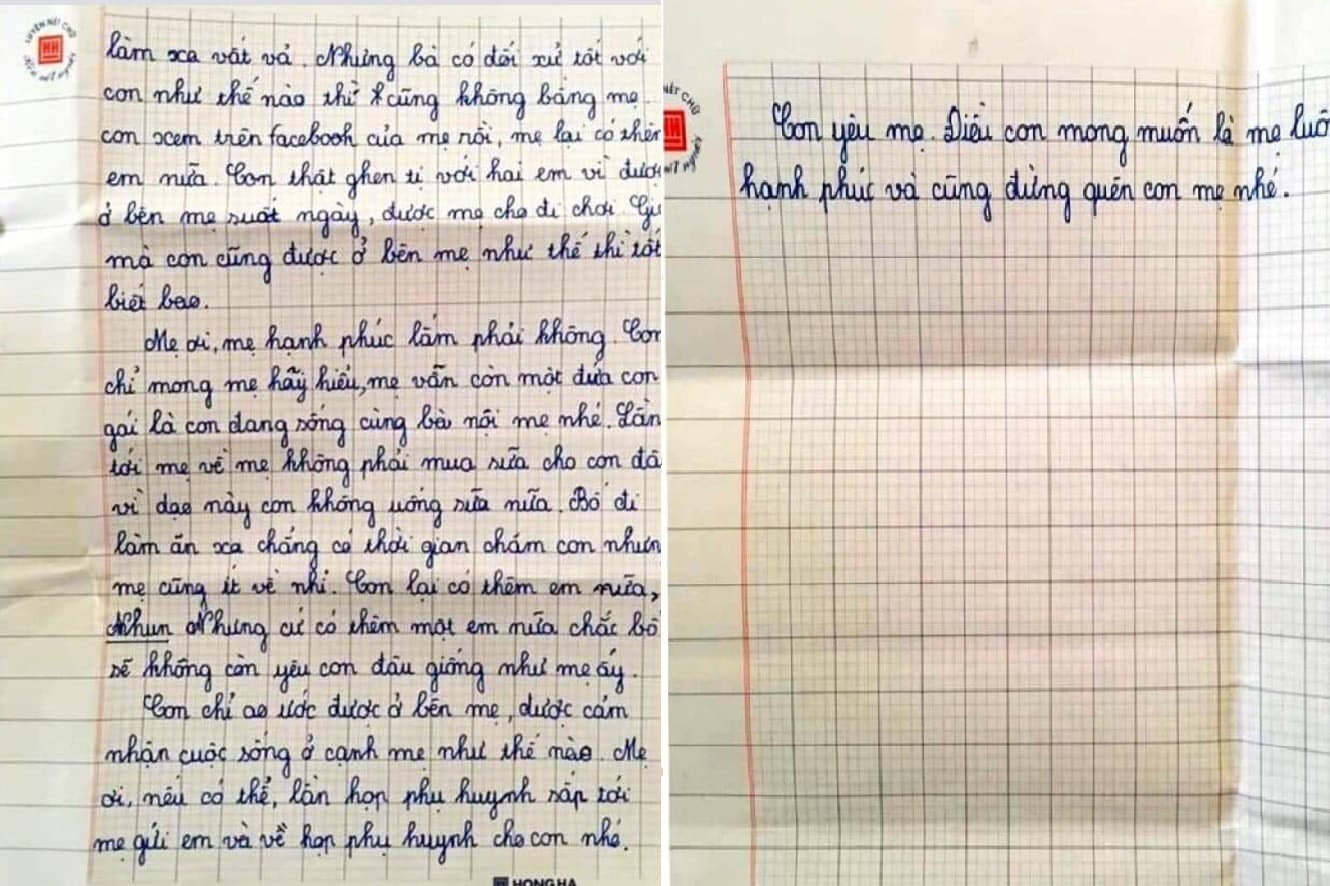 LUYỆN NÉT CHỮ
HH
làm xa vất vả. Nhưng bà có đối xử tốt với
con như thế nào thì cũng không bằng mẹ.
con xem trên facebook của mẹ rồi, mẹ lại có thêm
em nữa. Con thật ghen tị với hai em vì được
ở bên mẹ suốt ngày, được mẹ cho đi chơi.
mà con cũng được ở bên mẹ như thế thì tốt
biết bao.
Mẹ ơi, mẹ hạnh phúc lắm phải không. Con
chỉ mong mẹ hãy hiểu, mẹ vẫn còn một đứa con
gái là con đang sống cùng bà nội mẹ nhé. Lần
tới mẹ về mẹ không phải mua sữa cho con đâ
vì dạo này con không uống sữa nữa. Bố đi
làm ăn xa chẳng có thời gian chăm con nhưn
mẹ cũng ít về nhỉ. Con lại có thêm em nữa,
Nhun Nhưng cứ có thêm một em nữa chắc bố
sẽ không còn yêu con đâu giống như mẹ ấy.
Con chỉ ao ước được ở bên mẹ, được cảm
nhận cuộc sống ở cạnh mẹ như thế nào. Mẹ
ơi, nếu có thể, lần họp phụ huynh sắp tới
mẹ gửi em và về họp phụ huynh cho con nhé.
HONG HA
NÉT CHỮ
Con yêu mẹ. Điều con mong muốn là mẹ luô
hạnh phúc và cũng đừng quên con mẹ nhé.